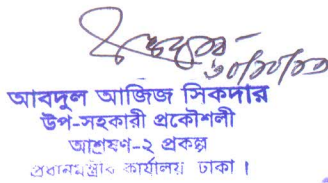 আবদুল আজিজ সিকদার
উপ-সহকারী প্রকৌশলী
আশ্রয়ণ-২ প্রকল্প
প্রধানমন্ত্রীর কার্যালয় ঢাকা ।